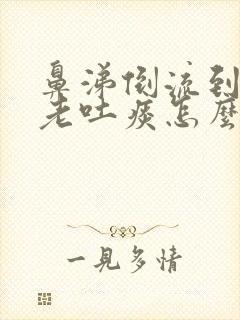 鼻涕倒流到
老吐痰怎麼
一見多情